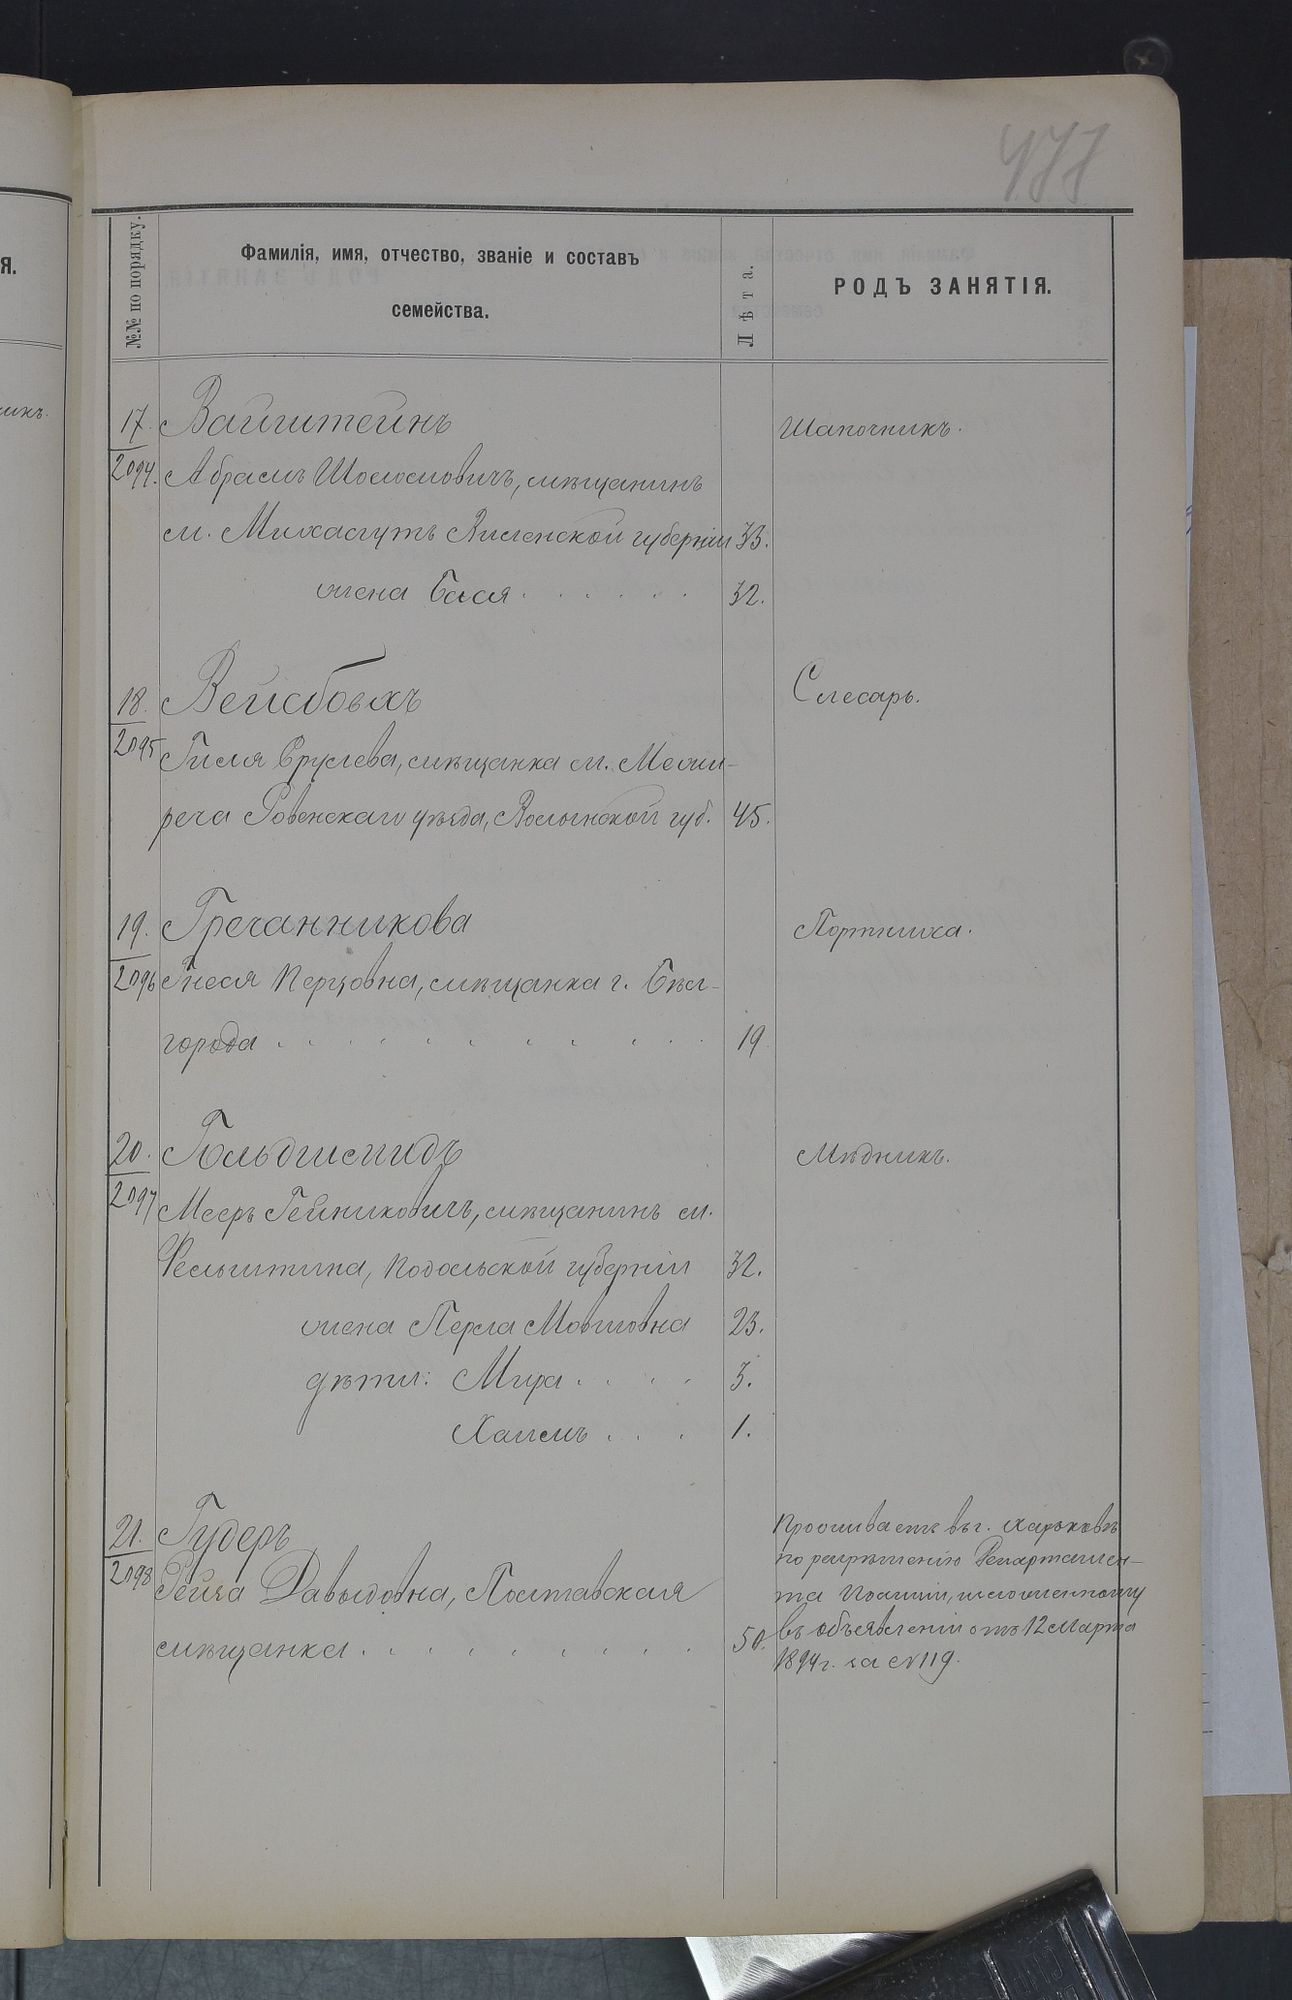 477
№№ по порядку.
Фамилія, имя, отчество, званіе и составъ
семейства.
Лѣта.
РОДЪ ЗАНЯТІЯ.
Я.
икъ.
17. Вайнштейнъ Шапочникъ.
2094. Абрамъ Шоломовичъ, мѣщанинъ
м. Михалгутъ Виленской губерніи 33.
жена Бася . . . . . . 32.
18. Вейсбоехъ Слесарь.
2095 Гиля Срулева, мѣщанка м. Межи-
реча Ровенскаго уѣзда, Волынской губ. 45.
19. Гречанникова Портниха.
2096 Гнеся Перцовна, мѣщанка г. Бѣл-
города . . . . . . . . . 19
20. Гольдшмидъ Мѣдникъ.
2097 Меерь Гейниховичъ, мѣщанинъ м.
Фельштина, Подольской губерніи 32.
жена Перла Мовшовна 23.
дѣти: Мира . . . . 3.
Хаимъ . . . 1.
21. Гудеръ
2098 Рейза Давыдовна, Полтавская
мѣщанка . . . . . . . . 50.
Проживаетъ въ г. Харьковѣ
по разрѣшенію Департамен-
та Полиціи, изложенному
въ объявленіи отъ 12 Марта
1894 г. за № 119.